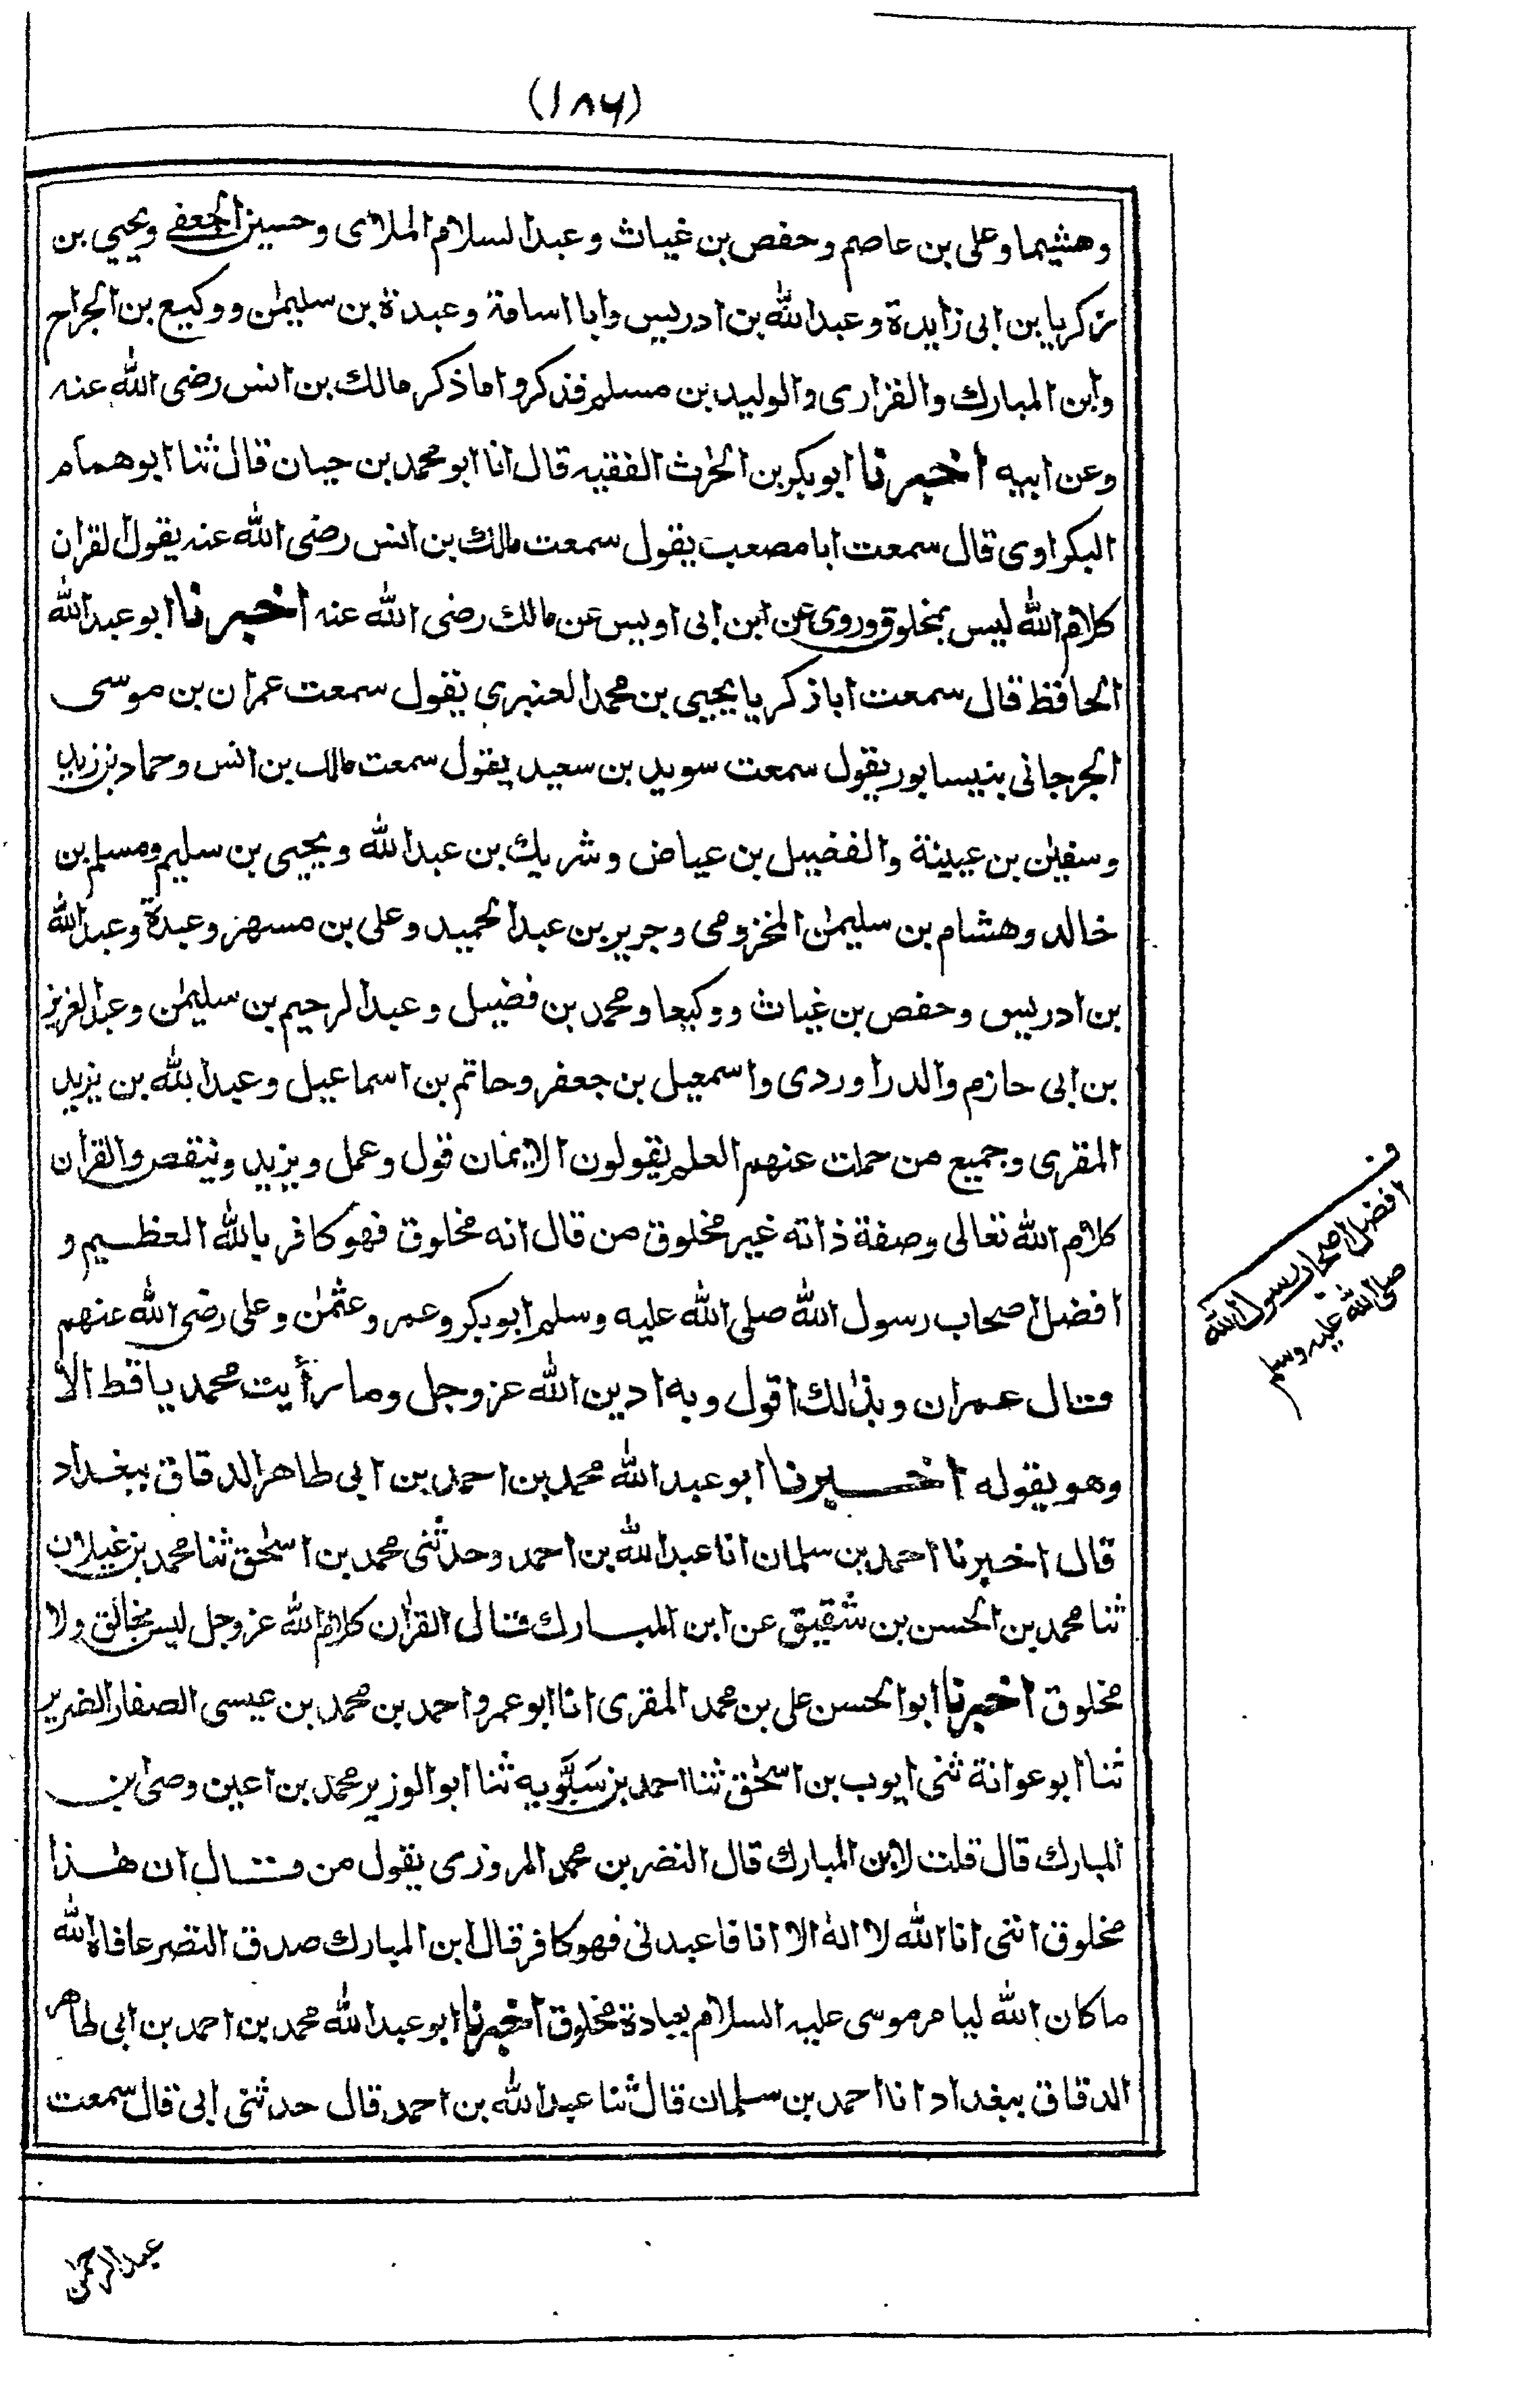 (١٨٦)
وهشيما وعلى بن عاصم وحفص بن غياث وعبد السلام الملائى وحسين الجعفے ويحيي بن
زكريا بن ابى زايدة وعبد الله بن ادريس وابا اسامة وعبدة بن سليمٰن ووكيع بن الجراح
وابن المبارك والفزارى والوليد بن مسلم فذكروا ما ذكر مالك بن انس رضى الله عنه
وعن ابيه اخبرنا ابو بكر بن الحٰرث الفقيه قال انا ابو محمد بن حيان قال ثنا ابو همام
البكراوى قال سمعت ابا مصعب يقول سمعت مالك بن انس رضى الله عنه يقول القرآن
كلام الله ليس بمخلوق وروى عن ابن ابى اويس عن مالك رضى الله عنه اخبرنا ابو عبد الله
الحافظ قال سمعت ابا ذكريا يحيى بن محمد العنبرى يقول سمعت عمران بن موسى
الجرجانى بنيسابور يقول سمعت سويد بن سعيد يقول سمعت مالك بن انس وحماد بن زيد
وسفيٰن بن عيينة والفضيل بن عياض وشريك بن عبد الله ويحيى بن سليم ومسلم بن
خالد وهشام بن سليمٰن المخزومى وجرير بن عبد الحميد وعلى بن مسهر وعبدة وعبد الله
بن ادريس وحفص بن غياث ووكيعا ومحمد بن فضيل وعبد الرحيم بن سليمٰن وعبد العزيز
بن ابى حازم والدراوردى واسمعيل بن جعفر وحاتم بن اسماعيل وعبد الله بن يزيد
المقرى وجميع من حملت عنهم العلم يقولون الايمان قول وعمل ويزيد وينقص والقرآن
كلام الله تعالى وصفة ذاته غير مخلوق من قال انه مخلوق فهو كافر بالله العظيم و
افضل اصحاب رسول الله صلى الله عليه وسلم ابو بكر وعمر وعثمٰن وعلى رضى الله عنهم
قال عمران وبذٰلك اقول وبه ادين الله عز وجل وما رأيت محمديا قط الا
وهو يقوله اخبرنا ابو عبد الله محمد بن احمد بن ابى طاهر الدقاق ببغداد
قال اخبرنا احمد بن سلمان انا عبد الله بن احمد وحدثنى محمد بن اسحٰق ثنا محمد بن غيلان
ثنا محمد بن الحسن بن شقيق عن ابن المبارك قال القرآن كلام الله عز وجل ليس بخالق ولا
مخلوق اخبرنا ابو الحسن على بن محمد المقرى انا ابو عمرو احمد بن محمد بن عيسى الصفار الضرير
ثنا ابو عوانة ثنى ايوب بن اسحٰق ثنا احمد بن سَبَّويه ثنا ابو الوزير محمد بن اعين وصى ابن
المبارك قال قلت لابن المبارك قال النضر بن محمد المروزى يقول من قال ان هٰذا
مخلوق اننى انا الله لا الٰه الا انا فاعبدنى فهو كافر قال ابن المبارك صدق النضر عافاه الله
ما كان الله ليامر موسى عليه السلام بعبادة مخلوق اخبرنا ابو عبد الله محمد بن احمد بن ابى طاهر
الدقاق ببغداد انا احمد بن سلمان قال ثنا عبد الله بن احمد قال حدثنى ابى قال سمعت
عبد الرحمٰن
ف
افضل اصحاب رسول الله
صلى الله عليه وسلم